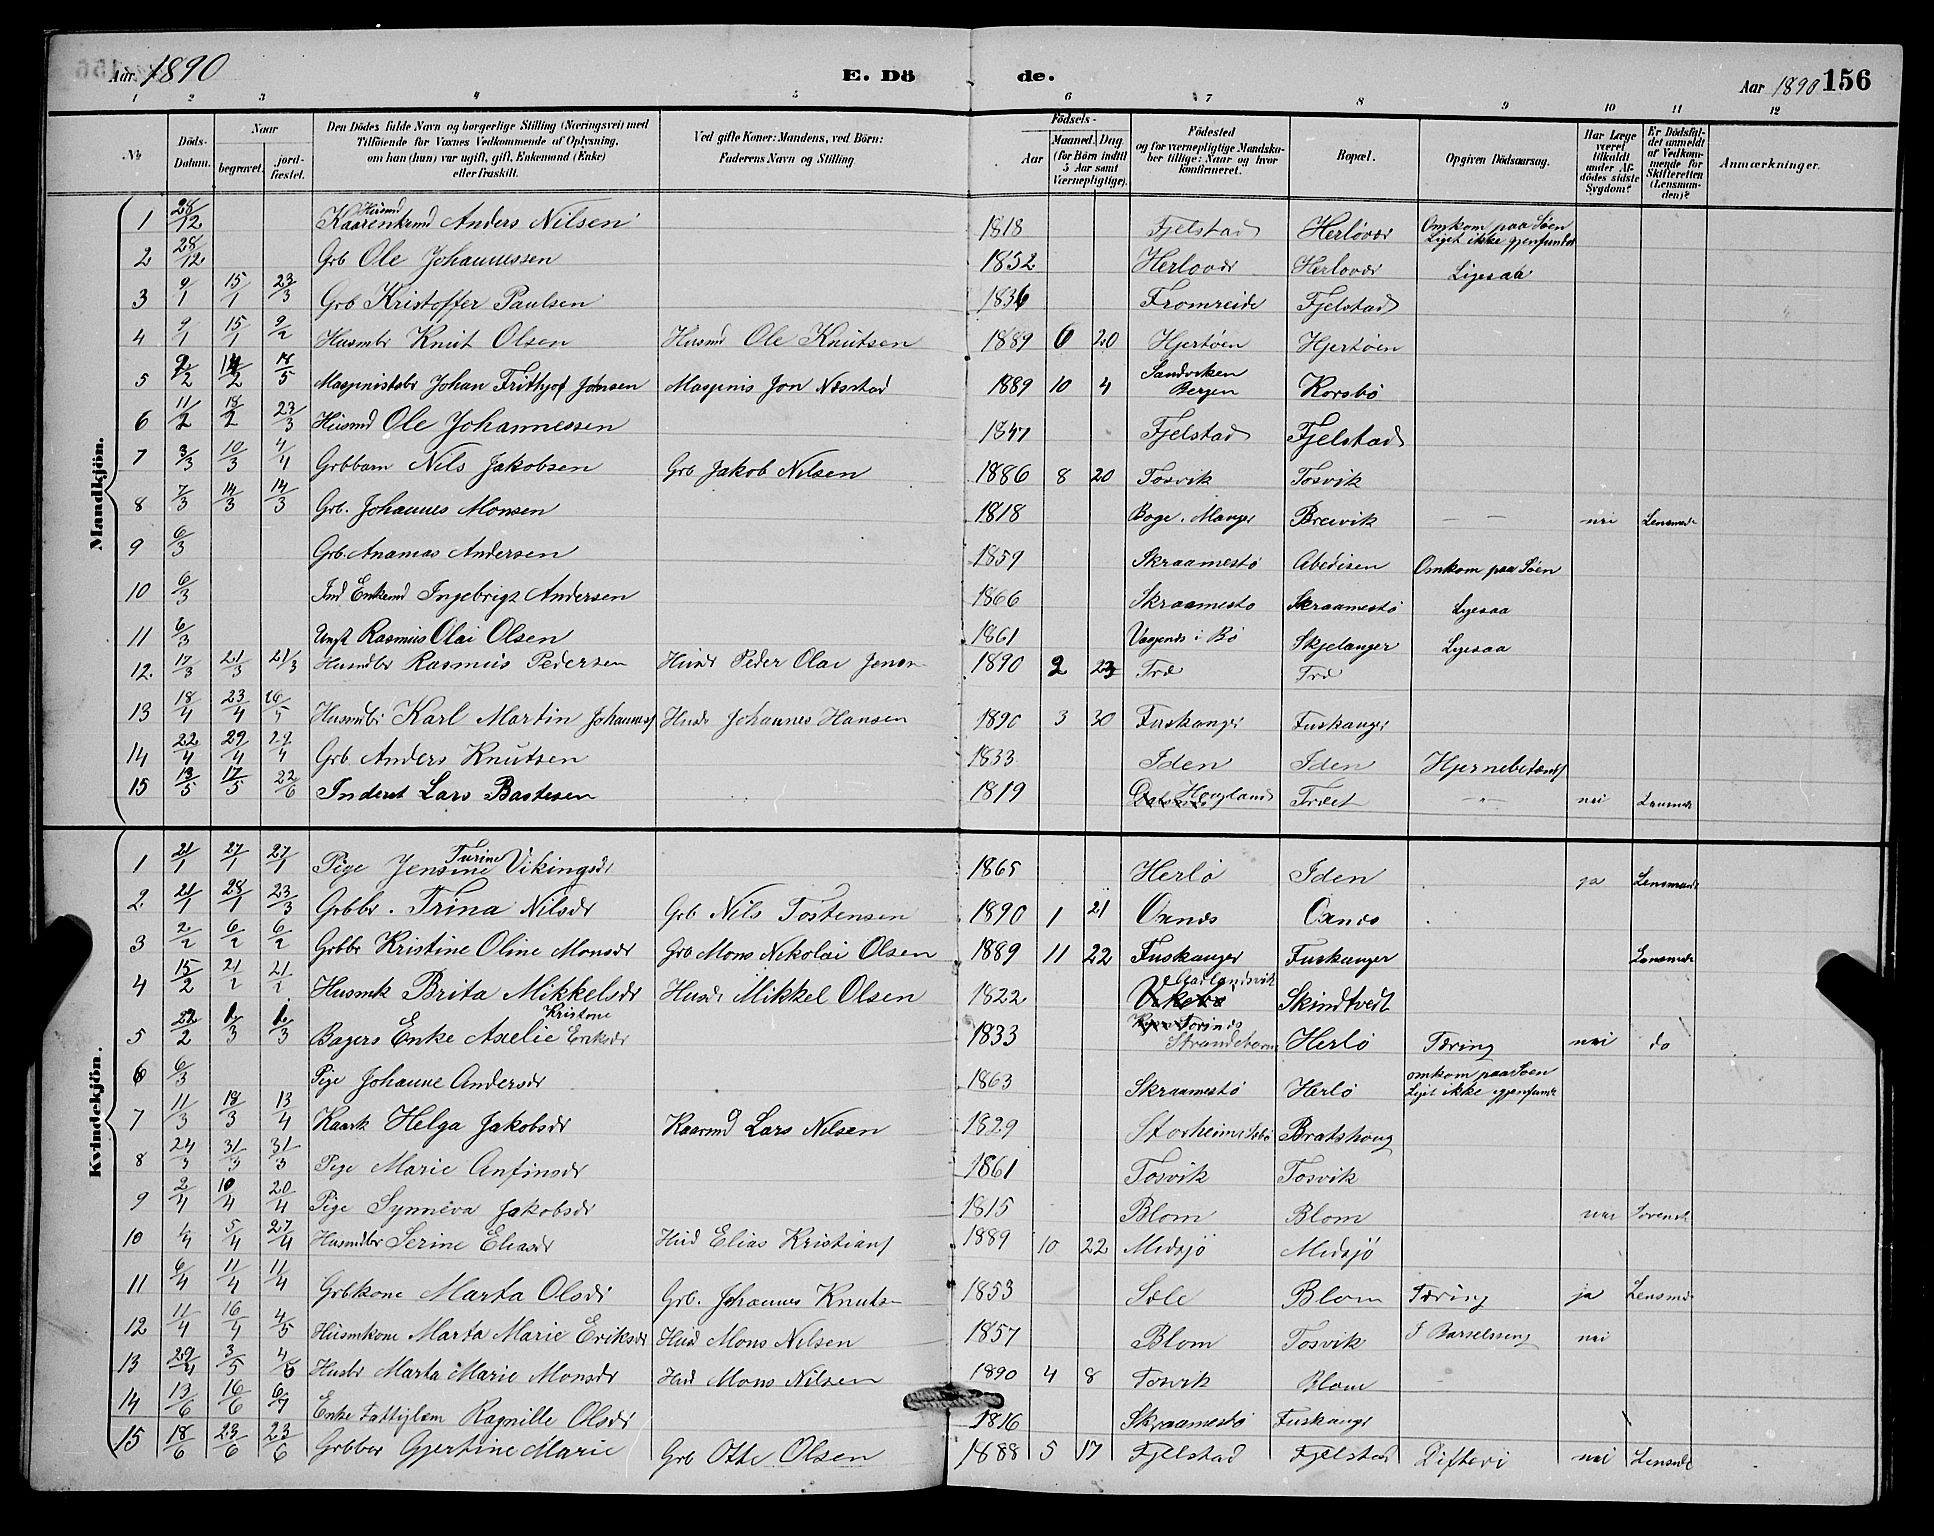 Aar 1890 E. Dö de. Aar 1890 156
1 2 3 4 5 6 7 8 9 10 11 12
No Döds-Datum. Naar begravet. jord-fæstet. Den Dödes fulde Navn og borgerlige Stilling (Næringsvei) med Tilföiende for Voxnes Vedkommende af Oplysning, om han (hun) var ugift, gift, Enkemand (Enke) eller fraskilt. Ved gifte Koner: Mandens, ved Börn: Faderens Navn og Stilling. Födsels- Aar Maaned. Dag (for Börn indtil 5 Aar samt Værnepligtige). Födested og for værnepligtige Mandskaber tillige: Naar og hvor konfirmeret. Bopæl. Opgiven Dödsaarsag. Har Læge været tilkaldt under Afdödes sidste Sygdom? Er Dödsfaldet anmeldt af Vedkommende for Skifteretten (Lensmanden)? Anmærkninger.
Mandkjön.
1 28/12 Husmd Kaarenkmd Anders Nilsen 1818 Fjelstad Herlövær Omkom paa Söen Liget ikke gjenfundet
2 28/12 Grb Ole Johannessen 1852 Herlovær Herlovær Ligesaa
3 9/1 15/1 23/3 Grb Kristoffer Paulsen 1836 Fromreide Fjelstad
4 9/1 15/1 9/2 Husmbr Knut Olsen Husmd Ole Knutsen 1889 6 20 Hjertöen Hjertöen
5 2/2 14/2 18/5 Maspinistsbr Johan Frithjof Jonsen Maspinis Jon Næsstad 1889 10 4 Sandviken Bergen Korsbö
6 11/2 18/2 23/3 Husmd Ole Johannessen 1847 Fjelstad Fjelstad
7 3/3 10/3 4/4 Grbbarn Nils Jakobsen Grb Jakob Nilsen 1886 8 20 Tosvik Tosvik
8 7/3 14/3 14/3 Grb. Johannes Monsen 1818 Boge, Manger Breivik — — nei Lensmde
9 6/3 Grb. Ananias Andersen 1859 Skraamestö Abedisen Omkom paa Söen
10 6/3 Ind Enkemd Ingebrigt Andersen 1866 Skraamesto Skraamestö Lyesaa
11 6/3 Ungk Rasmus Olai Olsen 1861 i Bö Skjelanger Lyesaa
12. 17/3 21/3 21/3 Husmdbr Rasmus Pedersen Husmd Peder Olai Jensn 1890 2 23 Træ Træ
13 18/4 23/4 Husmdbr Karl Martin Johannes Husd Johannes Hansen 1890 3 30 Fuskanger Fuskanger
14 22/4 29/4 29/4 Grb Anders Knutsen 1833 Iden Iden Hjernebetænds
15 13/5 17/5 22/6 Inderst Lars Bastesen 1819 Hougland Træet — " — nei Lensmde
Kvindekjön.
1 21/1 27/1 27/1 Pige Jensine Turine Vikingsdr 1865 Herlö Iden ja Lensmande
2 21/1 28/1 23/3 Grbbr. Trina Nilsdr Grb Nils Tostensen 1890 1 21 Oxnæs Oxnæs
3 2/2 6/2 6/2 Grbbr Kristine Oline Monsdr Grb Mons Nikolai Olsen 1889 11 22 Fuskanger Fuskanger Lensmde
4 15/2 21/2 21/2 Husmk Brita Mikkelsdr Husd Mikkel Olsen 1822 Skindtvedt
5 22/2 1/3 1/3 Bagers Enke Axelie Kristine Eriksdr 1833 Strandebarm Herlö Tæring nei do
6 6/3 Pige Johanne Andersdr 1863 Skraamestö Herlö omkom paa Söen Liget ikke gjenfunde
7 11/3 18/3 13/4 Kaark Helga Jakobsdr Kaarmd Lars Nilsen 1829 Storheim Sæbö Bratshoug
8 24/3 31/3 31/3 Pige Marie Anfinsdr 1861 Tosvik Tosvik
9 2/4 10/4 20/4 Pige Synneva Jakobsdr 1815 Blom Blom nei
10 1/4 5/4 27/4 Husmdbr Serine Eliasdr Hud Elias Kristians 1889 10 22 Midsjö Midsjö
11 6/4 11/4 11/4 Grbkone Marta Olsdr Grb. Johannes Knutsn 1853 Sæle Blom Tæring ja Lensmde
12 11/4 16/4 4/5 Husmkone Marta Marie Eriksdr Husd Mons Nilsen 1857 Blom Tosvik I Barselseng nei
13 29/4 3/5 4/5 Husbr Marta Marie Monsdr Husd Mons Nilsen 1890 4 8 Tosvik Blom —
14 13/6 16/6 6/7 Enke Fattiglem Ragnille Olsdr 1816 Skraamestö Fuskanger
15 18/6 23/6 23/6 Grbbar Gjertine Marie Grb Otte Olsen 1888 5 17 Fjelstad Fjelstad Difteri nei Lensmde